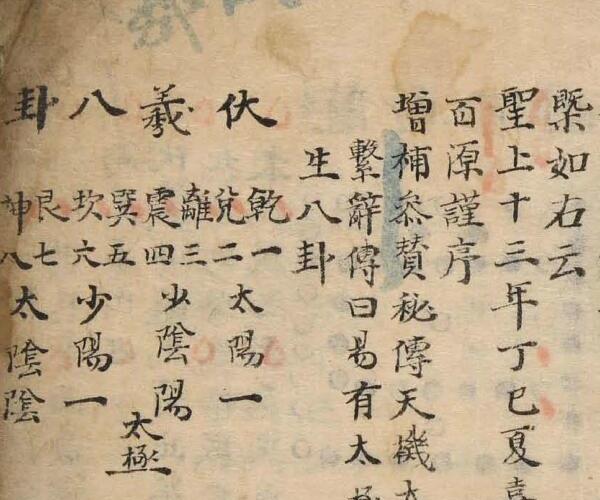 槩如右云
聖上十三年丁巳夏
百源謹序
增補叅賛秘傳天機
繫辭傳曰易有太極
生八卦
伏羲八卦
乾一
兌二
離三
震四
巽五
坎六
艮七
坤八
太陽一
少陰陽
少陽一
太陰陰
太極